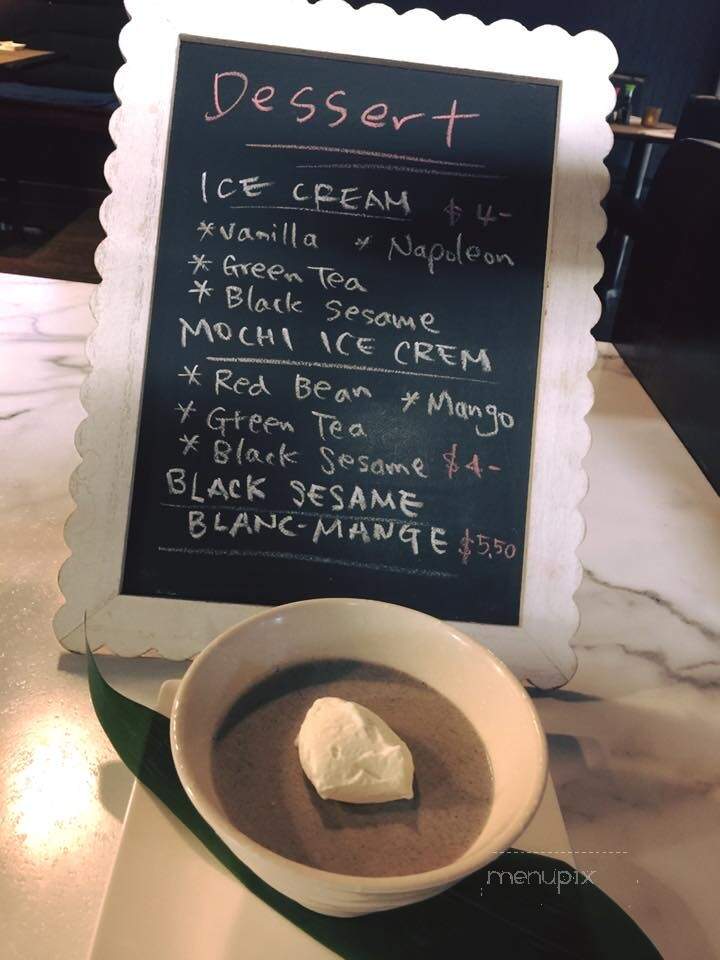 Dessert
ICE CREAM $4-
*Vanilla * Napoleon
* Green Tea
* Black Sesame
MOCHI ICE CREM
* Red Bean *Mango
* Green Tea
* Black Sesame $4-
BLACK SESAME
BLANC-MANGE $5.50
menupix